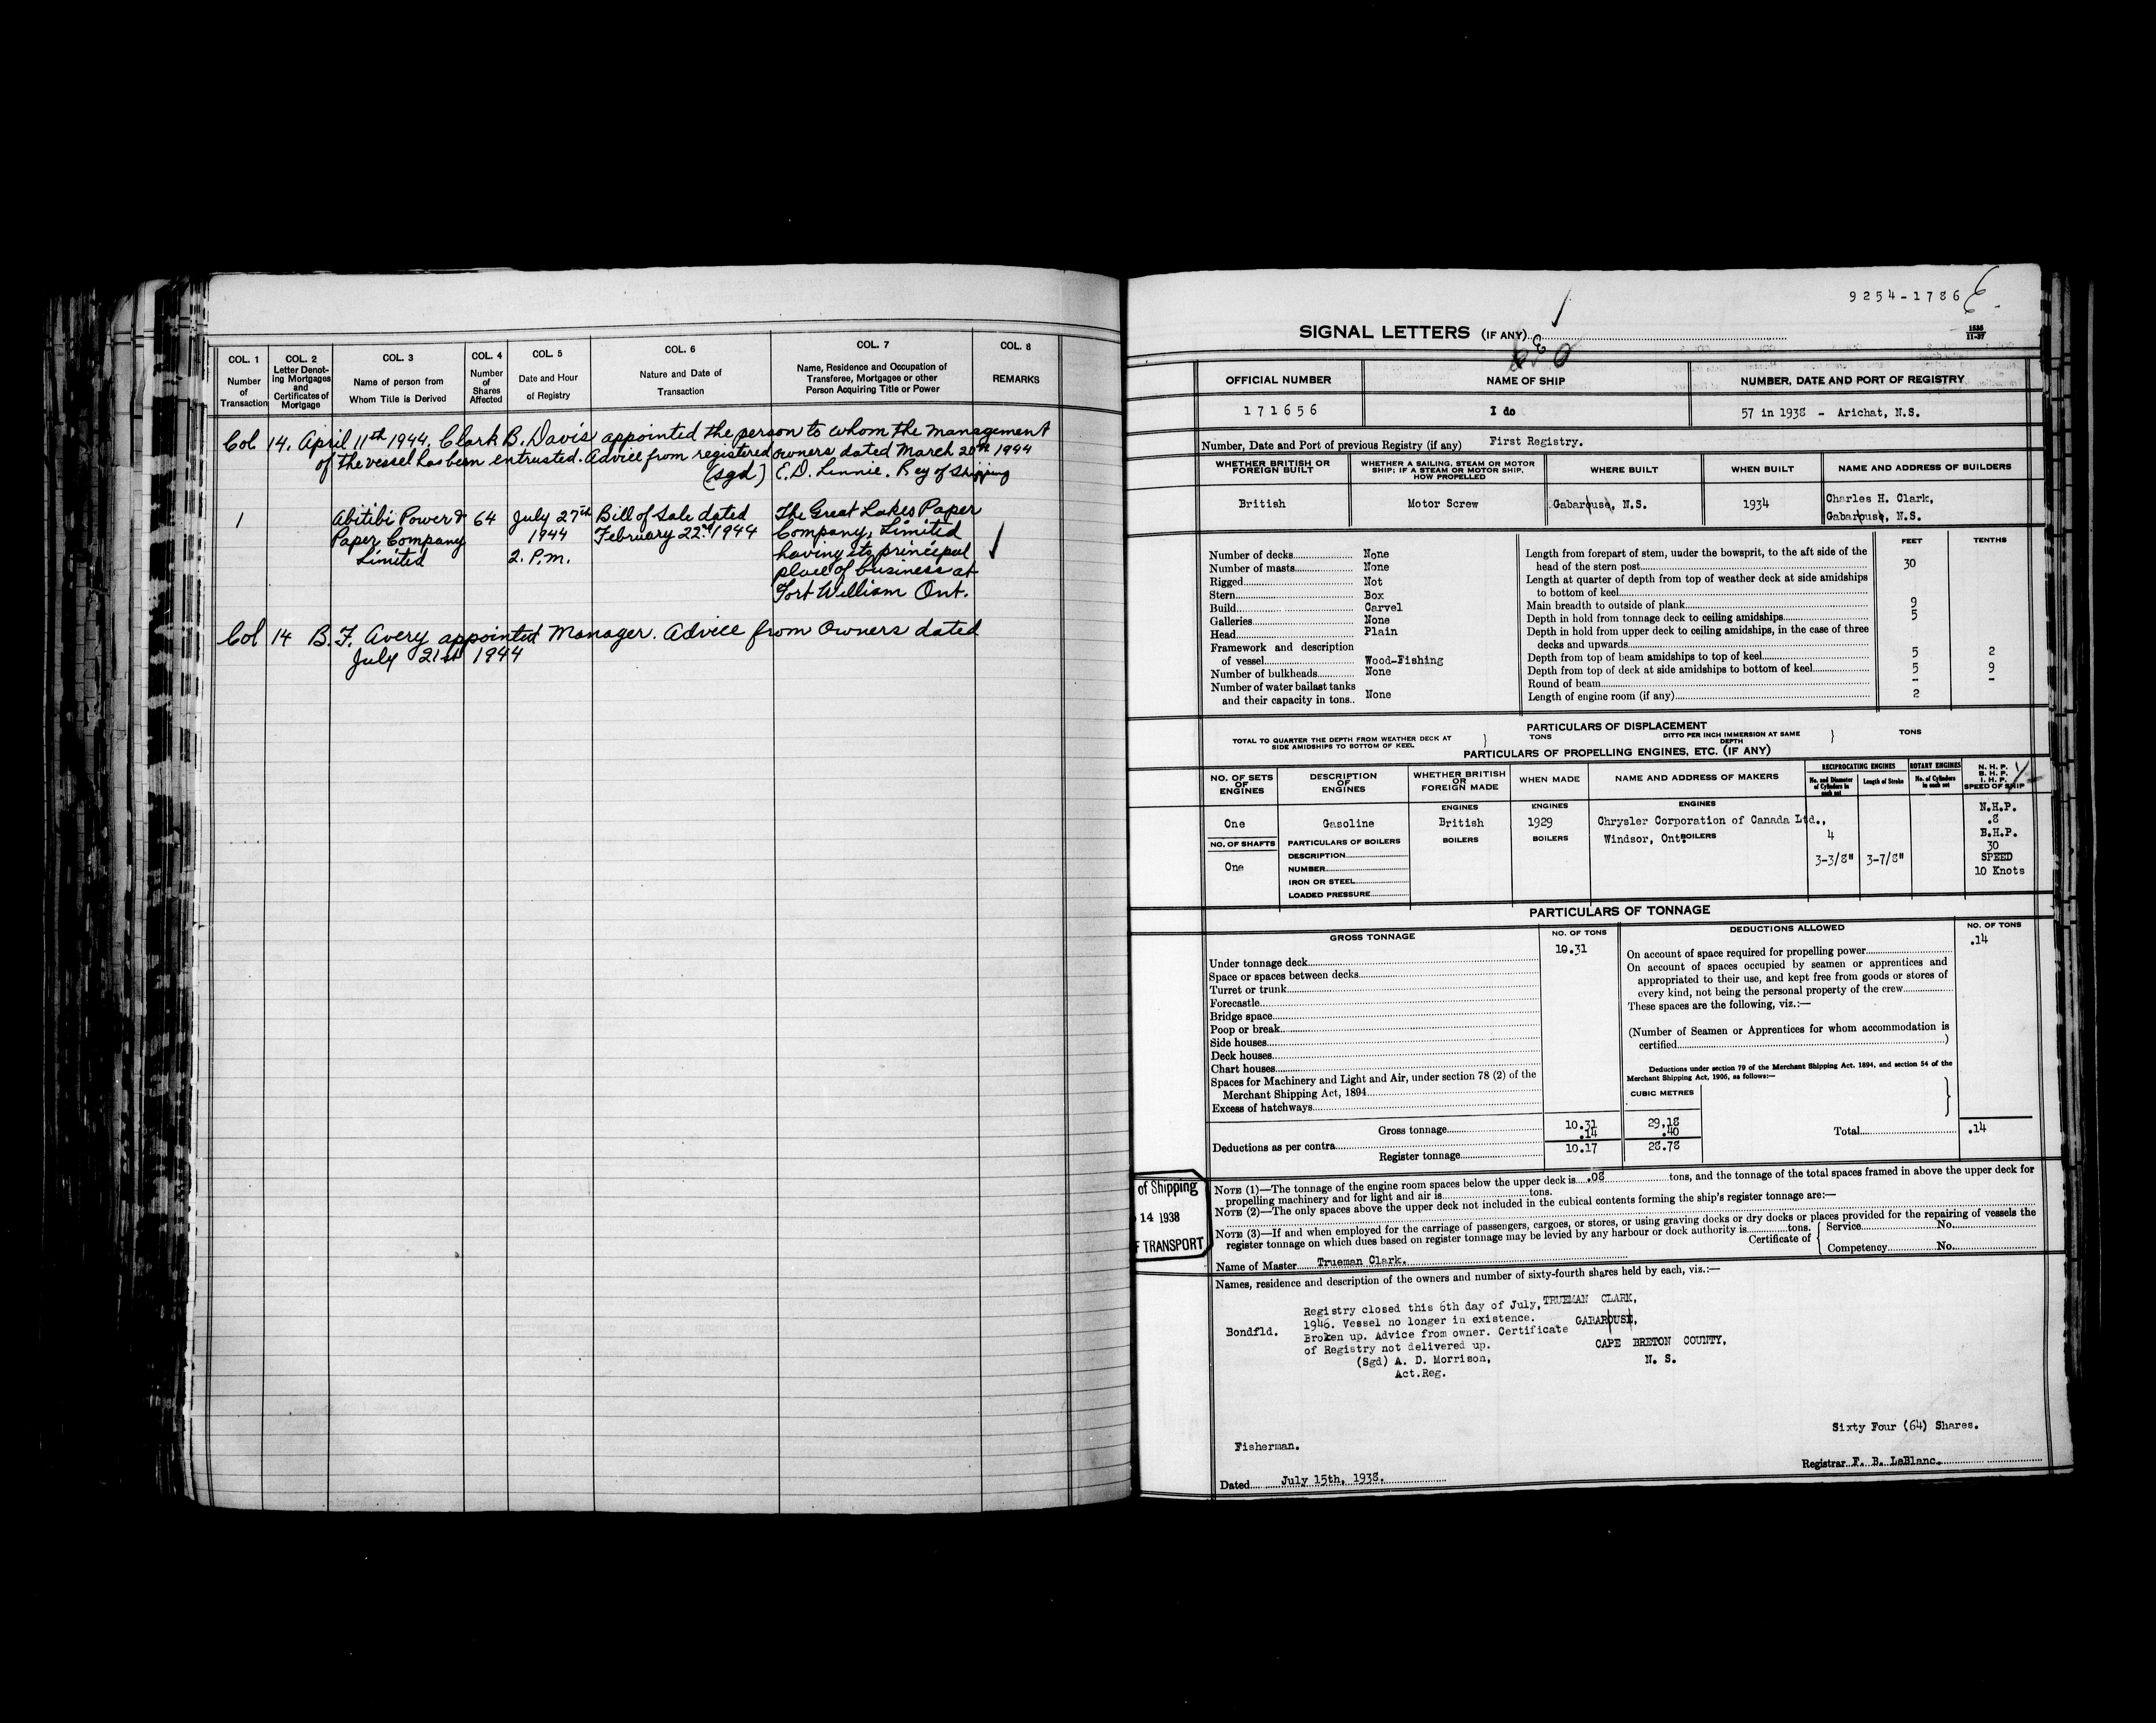 COL. 1
Number
of
Transaction
COL. 2
Letter Denot-
ing Mortgages
and
Certificates of
Mortgage
COL. 3
Name of person from
Whom Title is Derived
COL. 4
Number
of
Shares
Affected
COL. 5
Date and Hour
of Registry
COL. 6
Nature and Date of
Transaction
COL. 7
Name, Residence and Occupation of
Transferee, Mortgagee or other
Person Acquiring Title or Power
COL. 8
REMARKS
Col 14. April 11th 1944. Clark B. Davis appointed the person to whom the management
of the vessel has been entrusted. Advice from registered owners dated March 20th 1944
(sgd) E.D. Lennie. Reg of Shipping
1
Abitibi Power &
Paper Company
Limited
64
July 27th
1944
2. P.m.
Bill of Sale dated
February 22nd 1944
The Great Lakes Paper
Company, Limited
having its principal
place of business at
Fort William Ont.
Col 14 B. F. Avery appointed Manager. Advice from Owners dated
July 21st 1944
9254-1786
SIGNAL LETTERS (IF ANY)
1535
11-37
OFFICIAL NUMBER
NAME OF SHIP
NUMBER, DATE AND PORT OF REGISTRY
171656
I do
57 in 1938 - Arichat, N.S.
Number, Date and Port of previous Registry (if any) First Registry.
WHETHER BRITISH OR
FOREIGN BUILT
WHETHER A SAILING, STEAM OR MOTOR
SHIP; IF A STEAM OR MOTOR SHIP,
HOW PROPELLED
WHERE BUILT
WHEN BUILT
NAME AND ADDRESS OF BUILDERS
British
Motor Screw
Gabarouse, N.S.
1934
Charles H. Clark,
Gabarouse, N.S.
Number of decks None
Number of masts None
Rigged Not
Stern Box
Build Carvel
Galleries None
Head Plain
Framework and description
of vessel Wood-Fishing
Number of bulkheads None
Number of water ballast tanks
and their capacity in tons.. None
FEET TENTHS
Length from forepart of stem, under the bowsprit, to the aft side of the
head of the stern post 30
Length at quarter of depth from top of weather deck at side amidships
to bottom of keel
Main breadth to outside of plank 9
Depth in hold from tonnage deck to ceiling amidships 5
Depth in hold from upper deck to ceiling amidships, in the case of three
decks and upwards
Depth from top of beam amidships to top of keel 5 2
Depth from top of deck at side amidships to bottom of keel 5 9
Round of beam - -
Length of engine room (if any) 2
PARTICULARS OF DISPLACEMENT
TOTAL TO QUARTER THE DEPTH FROM WEATHER DECK AT
SIDE AMIDSHIPS TO BOTTOM OF KEEL
TONS
DITTO PER INCH IMMERSION AT SAME
DEPTH
TONS
PARTICULARS OF PROPELLING ENGINES, ETC. (IF ANY)
NO. OF SETS
OF
ENGINES
DESCRIPTION
OF
ENGINES
WHETHER BRITISH
OR
FOREIGN MADE
WHEN MADE
NAME AND ADDRESS OF MAKERS
RECIPROCATING ENGINES
No. and Diameter
of Cylinders in
each set
Length of Stroke
ROTARY ENGINES
No. of Cylinders
in each set
N. H. P.
B. H. P.
I. H. P.
SPEED OF SHIP
ENGINES
ENGINES
ENGINES
One
Gasoline
British
1929
Chrysler Corporation of Canada Ltd.,
Windsor, Ont.
4
3-3/8"
3-7/8"
N.H.P.
.8
B.H.P.
30
SPEED
10 Knots
NO. OF SHAFTS
One
PARTICULARS OF BOILERS
DESCRIPTION
NUMBER
IRON OR STEEL
LOADED PRESSURE
BOILERS
BOILERS
BOILERS
PARTICULARS OF TONNAGE
GROSS TONNAGE
NO. OF TONS
DEDUCTIONS ALLOWED
NO. OF TONS
Under tonnage deck 10.31
Space or spaces between decks
Turret or trunk
Forecastle
Bridge space
Poop or break
Side houses
Deck houses
Chart houses
Spaces for Machinery and Light and Air, under section 78 (2) of the
Merchant Shipping Act, 1894
Excess of hatchways
On account of space required for propelling power .14
On account of spaces occupied by seamen or apprentices and
appropriated to their use, and kept free from goods or stores of
every kind, not being the personal property of the crew
These spaces are the following, viz.:—
(Number of Seamen or Apprentices for whom accommodation is
certified )
Deductions under section 79 of the Merchant Shipping Act, 1894, and section 54 of the
Merchant Shipping Act, 1906, as follows:—
CUBIC METRES
Gross tonnage 10.31 29.18
Deductions as per contra .14 .40
Register tonnage 10.17 28.78
Total .14
NOTE (1)—The tonnage of the engine room spaces below the upper deck is .08 tons, and the tonnage of the total spaces framed in above the upper deck for
propelling machinery and for light and air is tons.
NOTE (2)—The only spaces above the upper deck not included in the cubical contents forming the ship's register tonnage are:—
NOTE (3)—If and when employed for the carriage of passengers, cargoes, or stores, or using graving docks or dry docks or places provided for the repairing of vessels the
register tonnage on which dues based on register tonnage may be levied by any harbour or dock authority is tons.
Certificate of
Service No.
Competency No.
of Shipping
14 1938
F TRANSPORT
Name of Master Trueman Clark.
Names, residence and description of the owners and number of sixty-fourth shares held by each, viz.:—
Bondfld.
Registry closed this 6th day of July,
1946. Vessel no longer in existence.
Broken up. Advice from owner. Certificate
of Registry not delivered up.
(Sgd) A. D. Morrison,
Act.Reg.
TRUEMAN CLARK,
GABAROUSE,
CAPE BRETON COUNTY,
N. S.
Sixty Four (64) Shares.
Fisherman.
Dated July 15th, 1938.
Registrar F. B. LeBlanc.